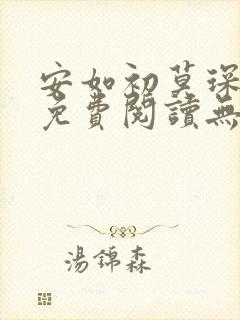 安如初莫琛
免費閱讀無
湯錦森